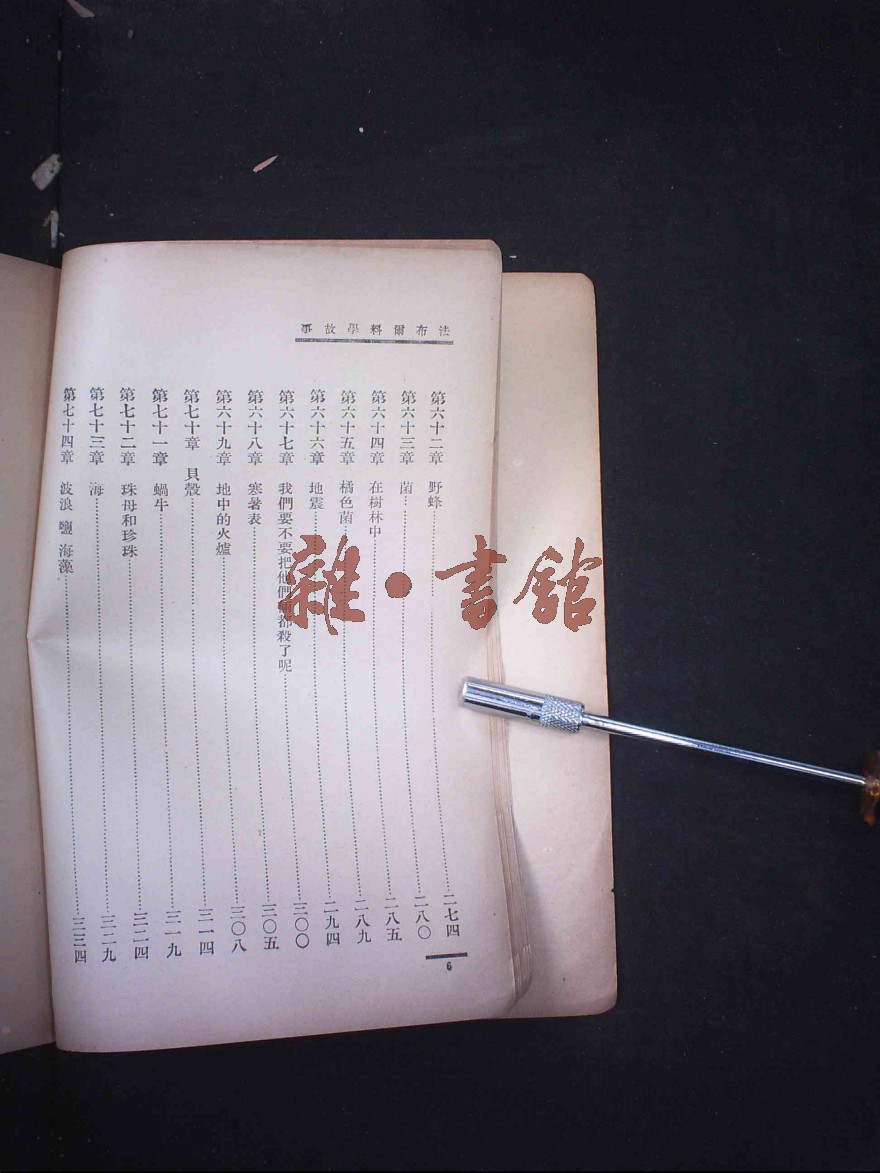 法布爾科學故事
第六十二章 野蜂……二七四
第六十三章 菌……二八〇
第六十四章 在樹林中……二八五
第六十五章 橘色菌……二八九
第六十六章 地震……二九四
第六十七章 我們要不要把他們兩都殺了呢……三〇〇
第六十八章 寒暑表……三〇五
第六十九章 地中的火爐……三〇八
第七十章 貝殼……三一四
第七十一章 蝸牛……三一九
第七十二章 珠母和珍珠……三二四
第七十三章 海……三二九
第七十四章 波浪 鹽 海藻……三三四
6
雜·書舘